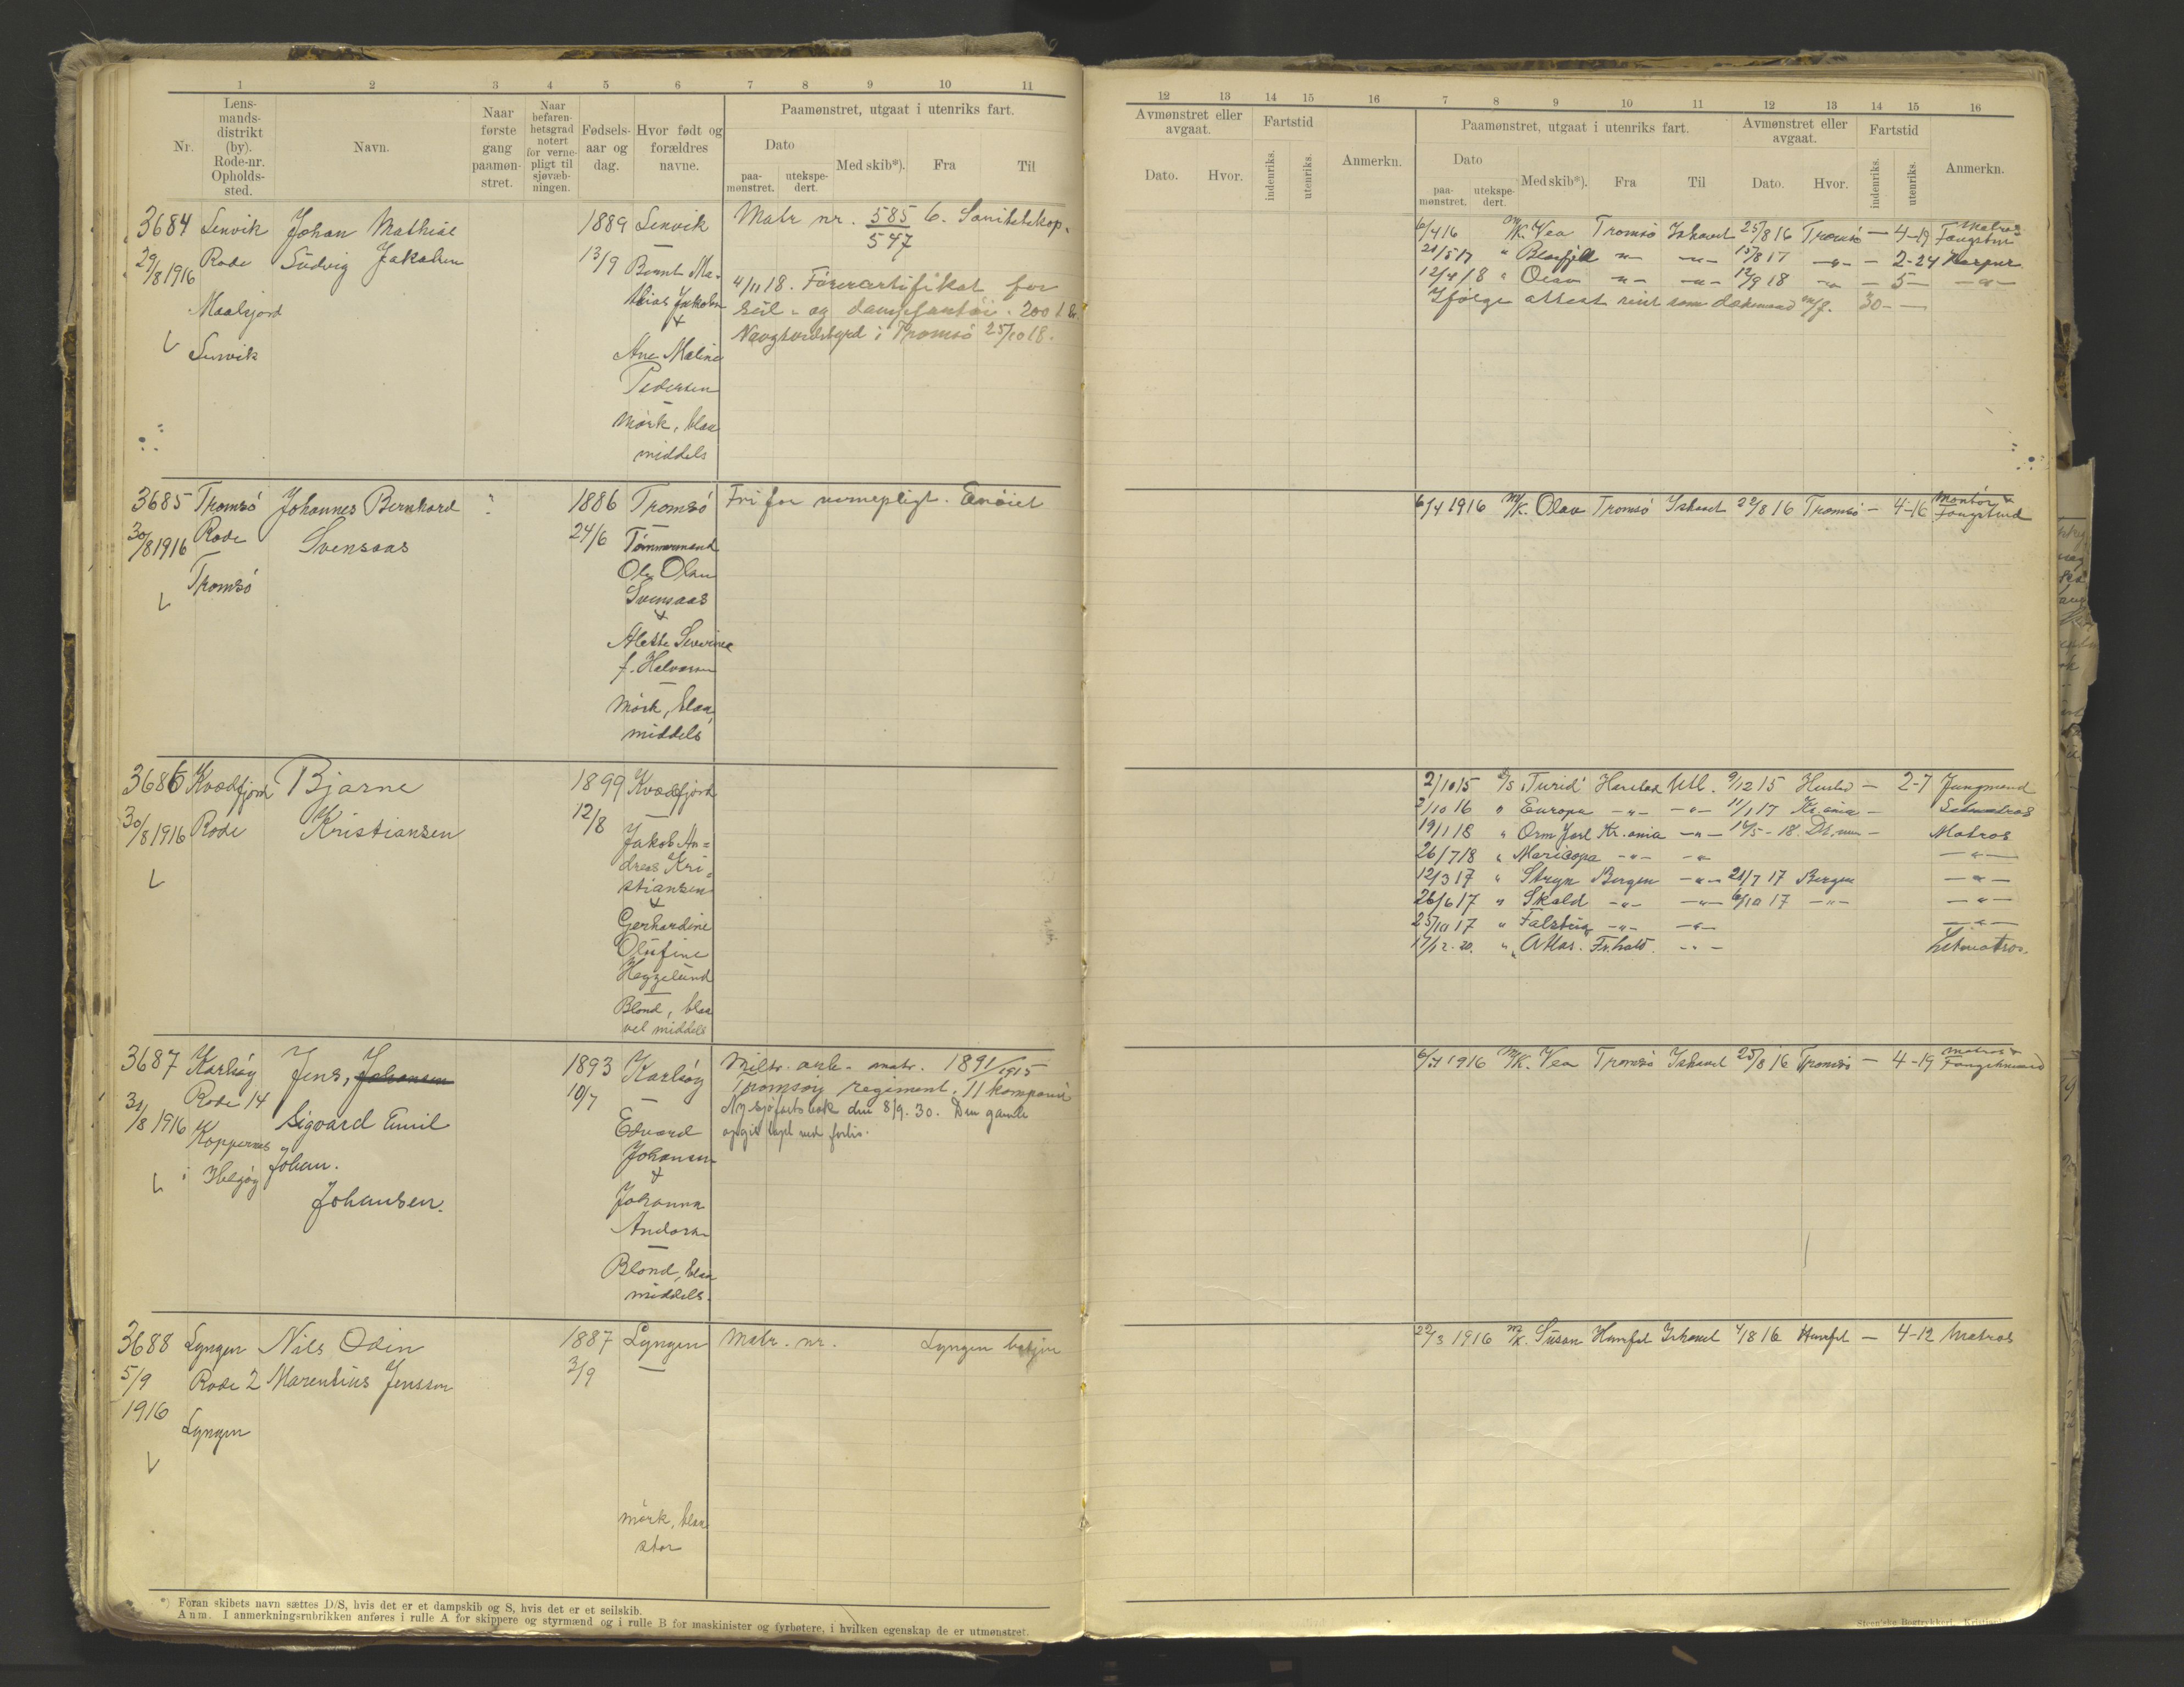 1 2 3 4 5 6 7 8 9 10 11
Nr.
Lens-
mands-
distrikt
(by).
Rode-nr.
Opholds-
sted.
Navn.
Naar
første
gang
paamøn-
stret.
Naar
befaren-
hetsgrad
notert
for verne-
pligt til
sjøvæb-
ningen.
Fødsels-
aar og
dag.
Hvor født og
forældres
navne.
Paamønstret, utgaat i utenriks fart.
Dato
paa-
mønstret.
utekspe-
dert.
Med skib*).
Fra
Til
12 13 14 15 16 7 8 9 10 11 12 13 14 15 16
Avmønstret eller
avgaat.
Dato. Hvor.
Fartstid
indenriks. utenriks.
Anmerkn.
Paamønstret, utgaat i utenriks fart.
Dato
paa-
mønstret.
utekspe-
dert.
Med skib*). Fra Til
Avmønstret eller
avgaat.
Dato. Hvor.
Fartstid
indenriks. utenriks.
Anmerkn.
3684
29/8 1916
Lenvik
Rode
Maalsjord
Lenvik
Johan Mathias
Ludvig Jakobsen
1889
13/9
Lenvik
Bernt Ma-
thias Jakobsen
+
Ane Maline
Pedersen
Mörk, blaa
middels
Matr nr. 585/547 6. Sanitetskop.
4/11 18. Förercertifikat for
seil- og dampfartöi. 200 t br.
i Tromsö 25/10 18.
6/4 16 M/K. Vea Tromsö Ishavet 25/8 16 Tromsö — 4-19 Matros
Fangstm
21/5 17 " Blaafjell -"- -"- 15/8 17 -"- - 2-24 Harpun
12/4 18 " Olav -"- -"- 12/9 18 -"- - 5- -"-
Ifølge attest reist som dæksmand 30-
3685
30/8 1916
Tromsö
Rode
Tromsö
Johannes Bernhard
Svensaas
1886
24/6
Tromsö
Tömmermand
Ole Olsen
Svensaas
+
Alette Severine
f. Halvorsen
Mörk, blaa,
middels
Fri for vernepligt. Enöiet
6/4 1916 M/K. Olav Tromsö Ishavet 22/8 16 Tromsö - 4-16 Montör &
Fangstmd
3686
30/8 1916
Kvædfjord
Rode
Bjarne
Kristiansen
1899
12/8
Kvædfjord
Jakob An=
dreas Kri=
stiansen
+
Gerhardine
Olufine
Heggelund
Blond, blaa
vel middels
2/10 15 D/S "Turid" Harstad Utl. 9/12 15 Harstad - 2-7 Jungmand
2/10 16 " Europa -"- -"- 11/1 17 Kr.ania - Letmatros
19/1 18 " Orm Jarl Kr.ania -"- 14/5-18. - Matros
26/7 18 " Maricopa -"- -"- -"-
12/3 17 " Stryn Bergen -"- 21/7 17 Bergen -"-
26/6 17 " Skald -"- -"- 6/10 17 -"- -"-
25/10 17 " Falsterig -"- -"- -"-
17/12-20. " Atlas. Fr.hald. -"- Letmatros.
3687
31/8 1916
Karlsöy
Rode 14
Koppernes
i Helgöy
Jens, Johansen
Sigvard Emil
Johan.
Johansen.
1893
10/7
Karlsöy
Edvard
Johansen
+
Johanna
Andorsn
Blond, blaa
middels.
Miltr. ark. matr. 1891/1915
Tromsöy regiment. 11 kompani
Ny sjøfartsbok den 8/9.30. Den gamle
opgit tapt ved forlis.
6/4 1916 M/K. Vea Tromsö Ishavet 25/8 16 Tromsö - 4-19 Matros &
Fangstmand
3688
5/9
1916
Lyngen
Rode 2
Lyngen
Nils Odin
Marentius Jenssen
1887
3/9
Lyngen
mörk, blaa
stor
Matr. nr. Lyngen bataljon
22/3 1916 M/K. Susan Hamrfst Ishavet 4/8 16 Hamrfst - 4-12 Matros
*) Foran skibets navn sættes D/S, hvis det er et dampskib og S, hvis det er et seilskib.
Anm. I anmerkningsrubrikken anføres i rulle A for skippere og styrmænd og i rulle B for maskinister og fyrbøtere, i hvilken egenskap de er utmønstret.
Steen'ske Bogtrykkeri. Kristiania